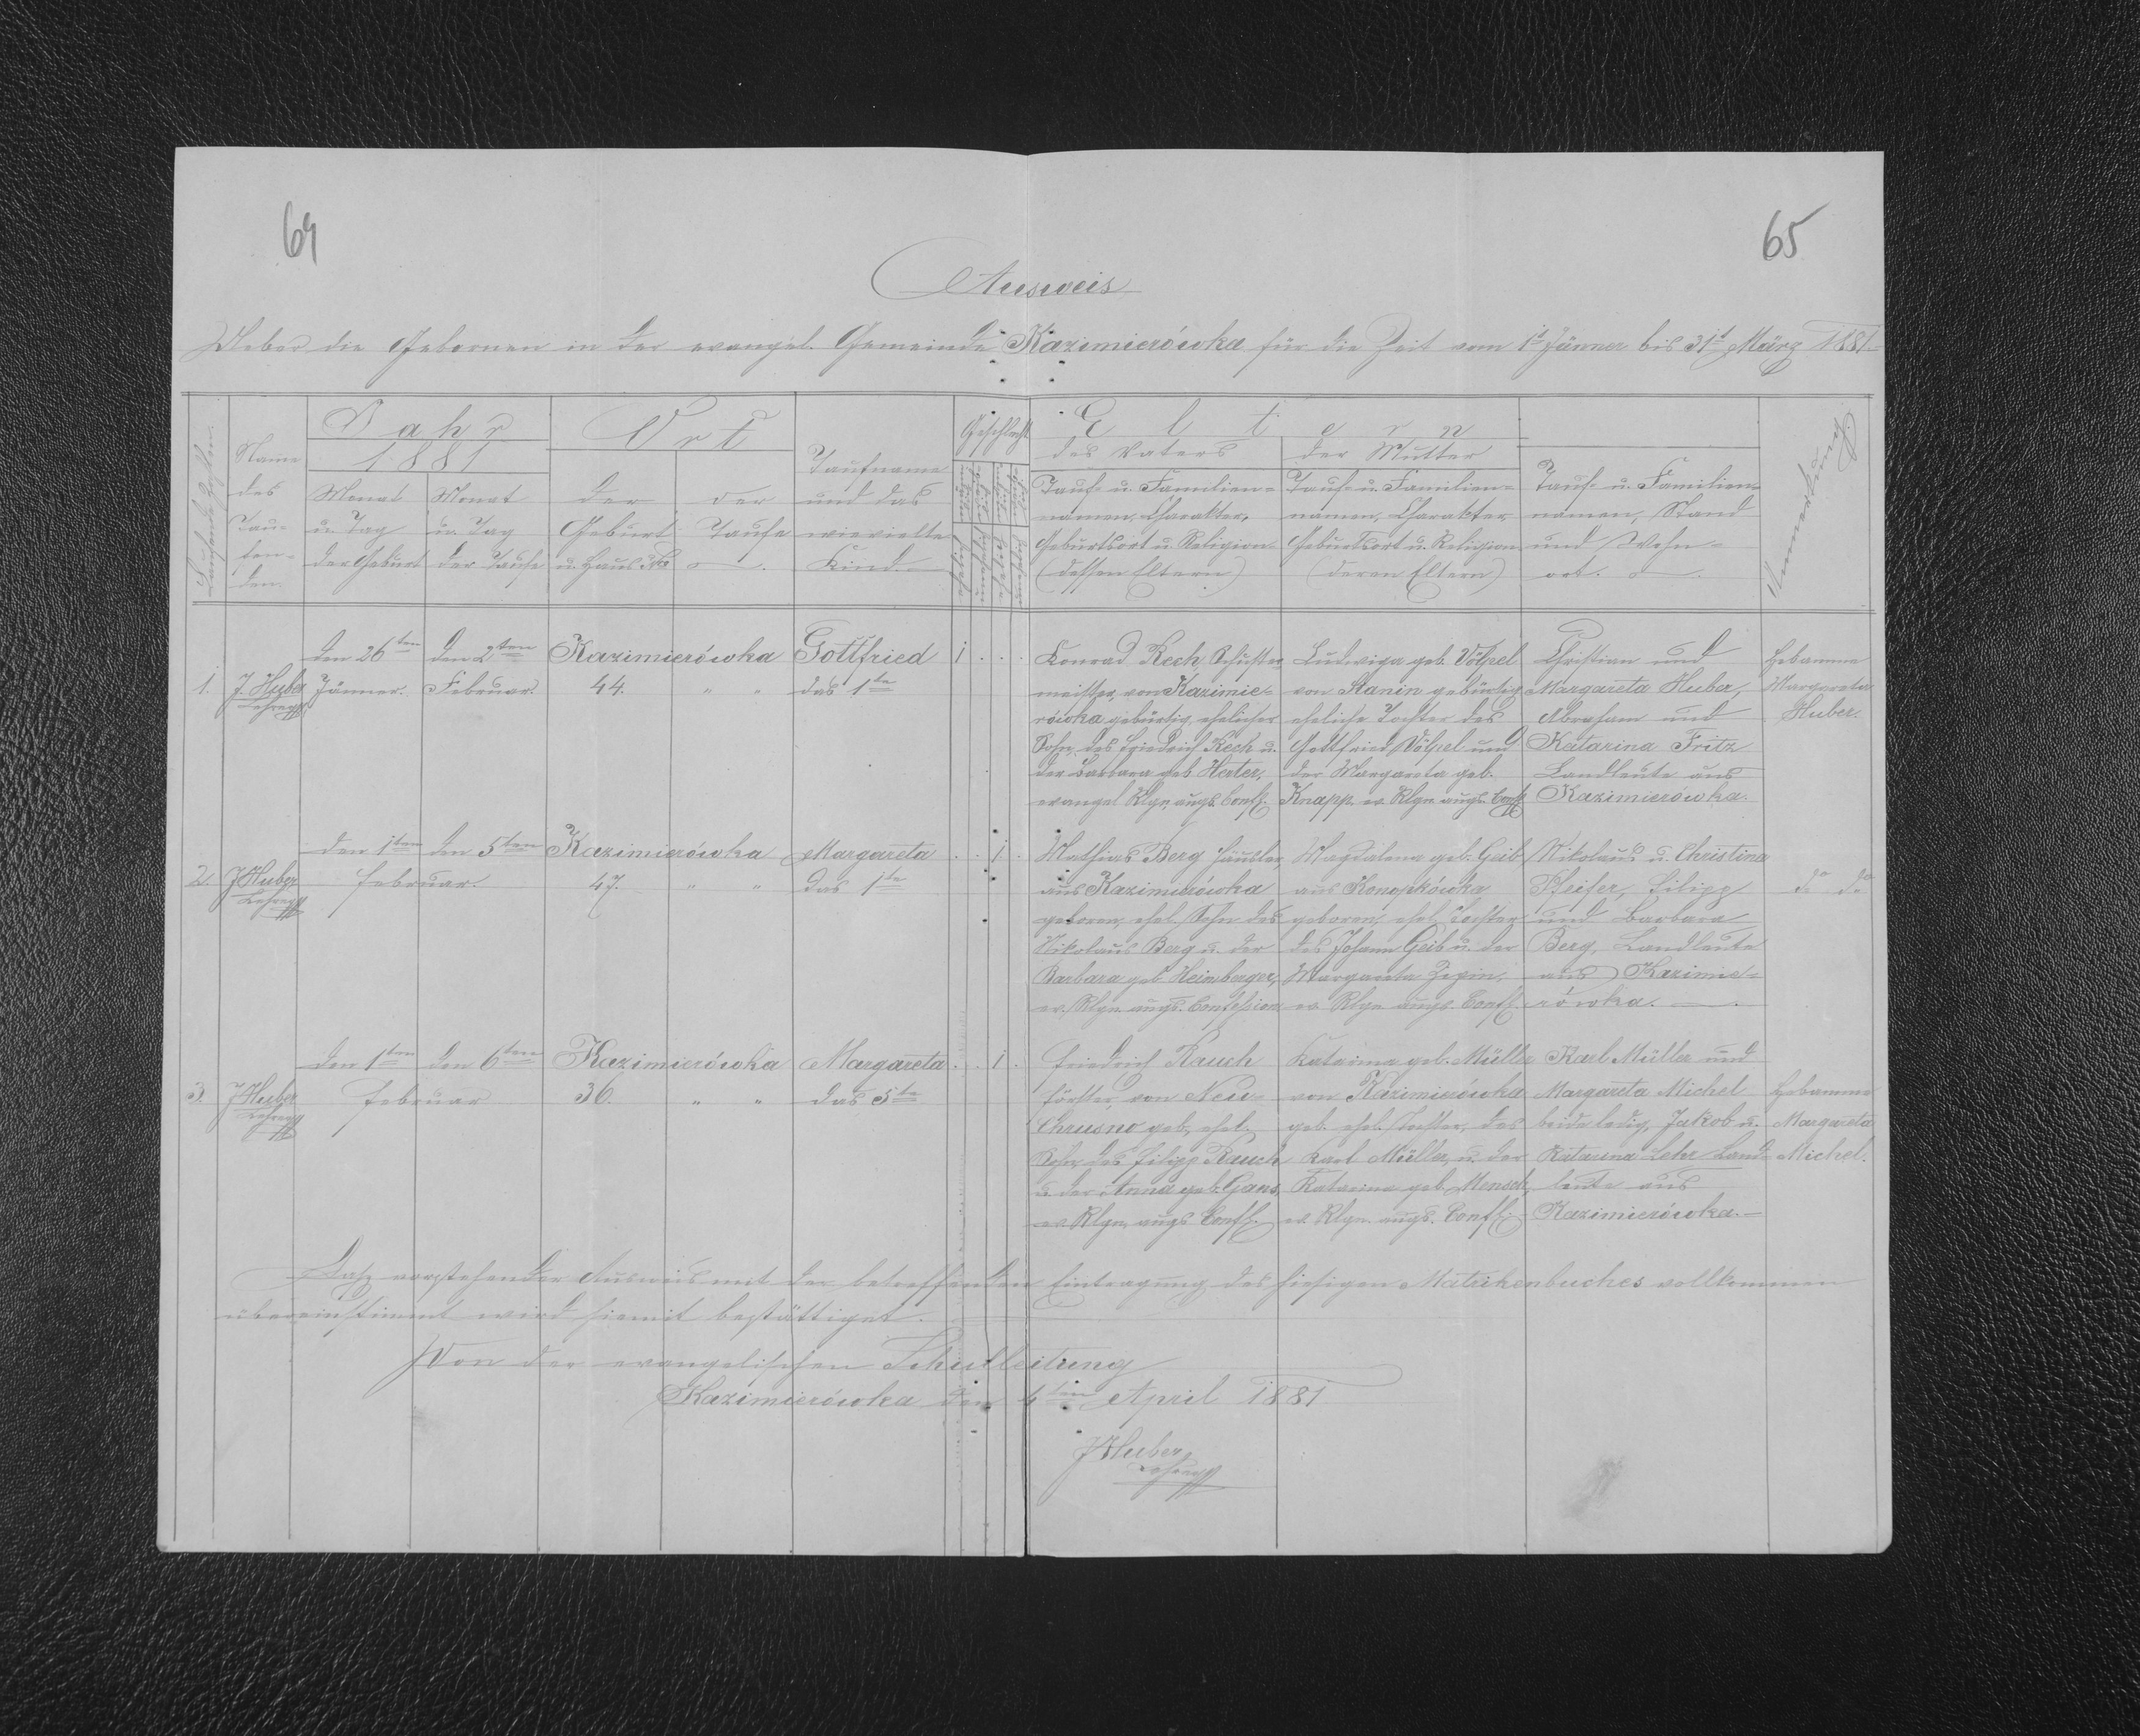 64
65
Ausweis
Ueber die Gebornen in der evangel. Gemeinde Kazimierówka für die Zeit vom 1t Jänner bis 31t März 1881.
Laufende Zahlen.
Name
des
Tau-
fen-
den.
Jahr
1881
Monat
u. Tag
der Geburt
Monat
u. Tag
der Taufe
Ort
der
Geburt
u. Haus Nro
der
Taufe
Taufname
und das
wievielte
Kind.
Geschlecht
Eltern
des Vaters
Tauf- u. Familien-
namen, Charakter,
Geburtsort u. Religion
(dessen Eltern)
der Mutter
Tauf- u. Familien-
namen, Charakter,
Geburtsort u. Religion
(deren Eltern)
Tauf- u. Familien-
namen, Stand
und Wohn-
ort.
Anmerkung.
1.
J. Huber
Lehrer
den 26ten
Jänner.
den 2ten
Februar.
Kazimierówka
44. " "
Gottfried
das 1te
1 . . .
Konrad Kech, Schuster-
meister, von Kazimie-
rówka gebürtig, ehelicher
Sohn des Friedrich Kech u.
der Barbara geb. Herter,
evangel. Rlgn. augs. Conf.
Ludwiga geb. Völpel
von Stanin gebürtig
eheliche Tochter des
Gottfried Völpel und
der Margareta geb.
Knapp. ev. Rlgn. augs. Conf.
Christian und
Margareta Huber,
Abraham und
Katarina Fritz
Landleute aus
Kazimierówka.
Hebamme
Margareta
Huber.
2.
J Huber
Lehrer
den 1ten den 5ten
Februar.
Kazimierówka
47. " "
Margareta
das 1te
. . 1 .
Mathias Berg Häusler,
aus Kazimierówka
geboren, ehel. Sohn des
Nikolaus Berg u. der
Barbara geb. Heimberger,
ev. Rlgn. augs. Confession
Magdalena geb. Geib,
aus Konopkówka
geboren, ehel. Tochter
des Johann Geib u. der
Margareta
ev. Rlgn. augs. Conf.
Nikolaus u. Christina
Pfeifer, Filipp
und Barbara
Berg, Landleute
aus Kazimie-
rówka.
do do
3.
J Huber
Lehrer
den 1ten den 6ten
Februar
Kazimierówka
36. " "
Margareta
das 5te
. . 1 .
Friedrich Rauch
Förster, von Neu-
Chrusno geb. ehel.
Sohn des Filipp Rauch
u. der Anna geb. Gans,
ev. Rlgn. augs. Conf.
Katarina geb. Müller
von Kazimierówka
geb. ehel. Tochter, des
Karl Müller, u. der
Katarina geb. Mensch,
ev. Rlgn. augs. Conf.
Karl Müller und
Margareta Michel
beide ledig, Jakob u.
Katarina Lehr Land-
leute aus
Kazimierówka.
Hebamme
Margareta
Michel.
Dass vorstehender Ausweis mit der betreffenden Eintragung des hiesigen Matrikenbuches vollkommen
übereinstimmt wird hiemit bestättiget.
Von der evangelischen Schulleitung
Kazimierówka den 4ten April 1881
J Huber
Lehrer